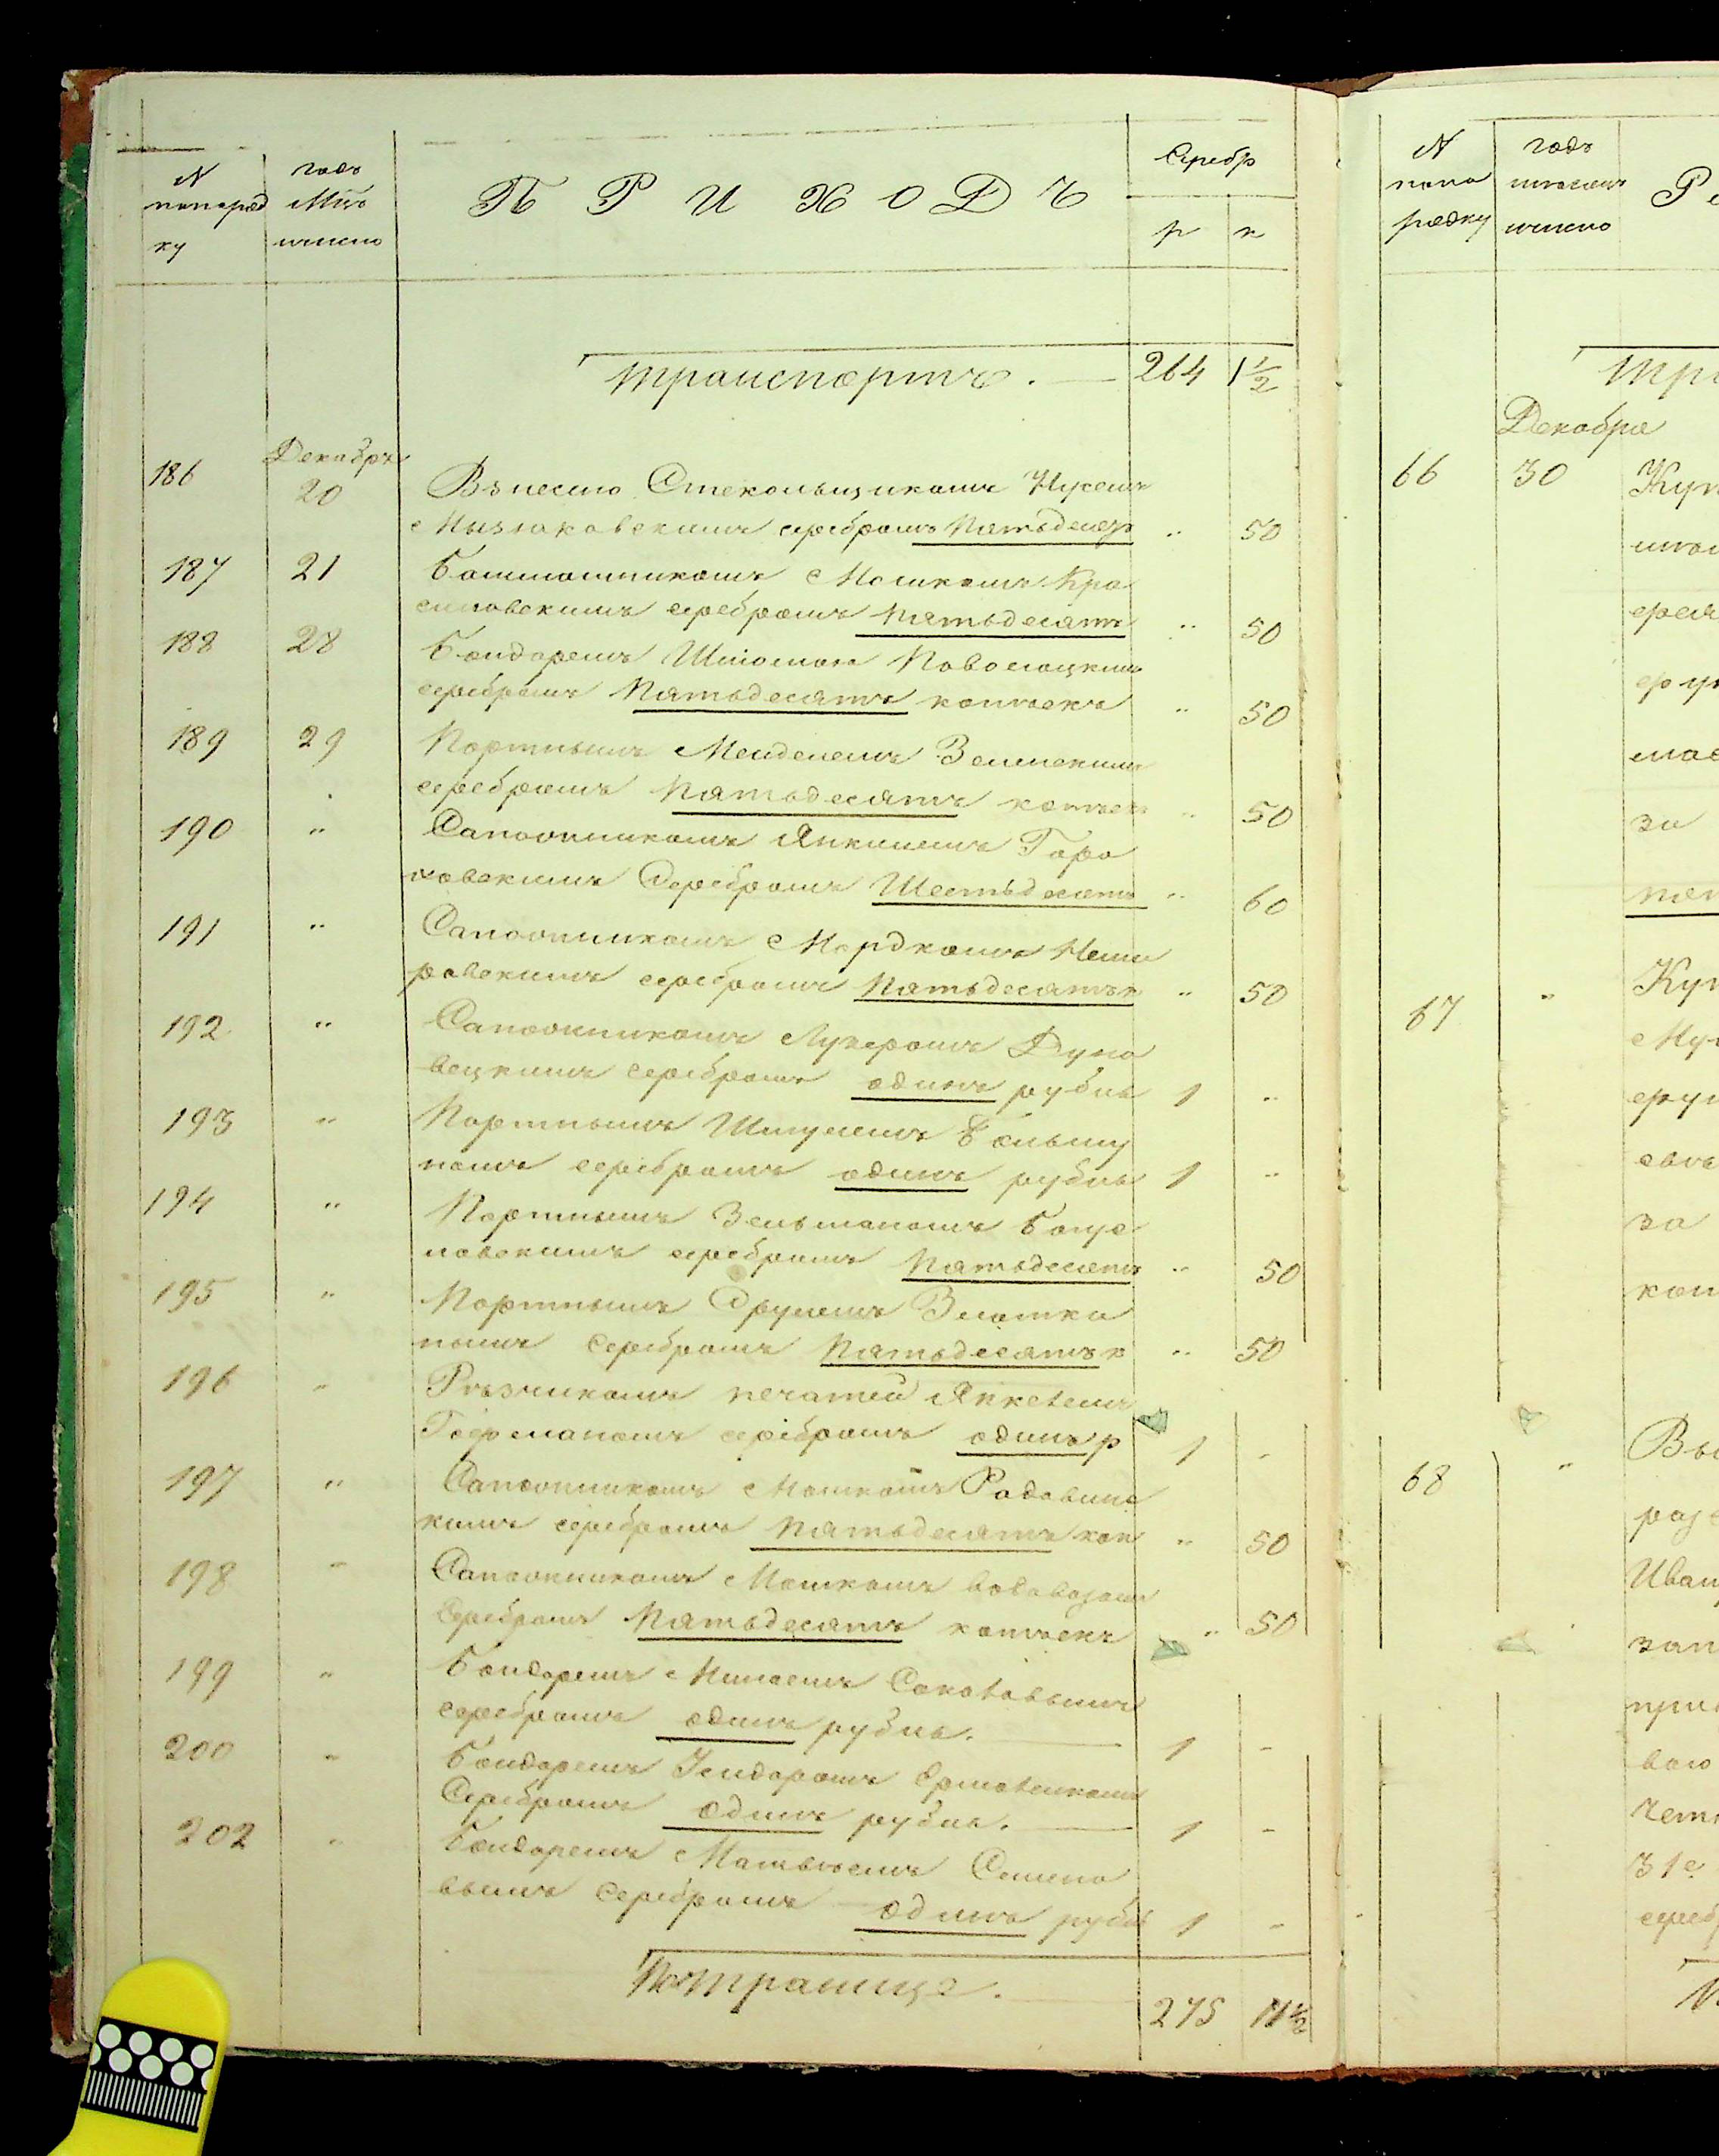 N
попоряд
ку
годъ
Мцъ
ичисло
ПРИХОДЪ
Серебр
р к
транспортъ. 264 1 1/2
Декабрь
186 20 Взнесно Стекольщикомъ
серебромъ пятьдесят " 50
187 21 Башмашникомъ Мошкомъ Кра
силовскимъ серебромъ пятьдесятъ " 50
188 28 Бондаремъ Шлiомою Новоселецкимъ
серебромъ Пятьдесятъ копъекъ " 50
189 29 Портнымъ Менделемъ Землскимъ
серебромъ пятьдесятъ копъек " 50
190 " Сапожникомъ Янкелемъ Горо
ховскимъ Серебромъ Шестьдесятъ " 60
191 " Сапожникомъ Мордкомъ Неми
ровскимъ серебромъ пятьдесятъ к " 50
192 " Сапожникомъ Лузеромъ Дуна
вецкимъ серебромъ одинъ рубль 1 "
193 " Портнымъ Шмулемъ Большу
номъ серебромъ одинъ рубль 1 "
194 " Портнымъ Зельманомъ
серебромъ Пятьдесятъ " 50
195 " Портнымъ Срулемъ Златки
нымъ Серебромъ пятьдесятъ к " 50
196 " Ръзчикомъ печатей Янкелемъ
серебромъ одинъ р 1 -
197 " Сапожникомъ Мошкомъ Радовинс
кимъ серебромъ пятьдесятъ коп " 50
198 " Сапожникомъ Мошкомъ водовозомъ
Серебромъ пятьдесятъ копъекъ " 50
199 " Бондаремъ Минаемъ Соколовымъ
серебромъ одинъ рубль. 1 -
200 " Бондаремъ Сидоромъ Ермоленкомъ
Серебромъ одинъ рубль. 1 -
202 " Бондаремъ Матвъемъ Семено
вымъ Серебромъ одинъ рубль 1 -
275
N
попо
рядку
годъ
мъсяцъ
ичисло
Ра
тра
Декабря
66 30 Куп
серя
сру
мас
за
пят
67 " Куп
сру
за
коп
68 " Вы
раз
Иван
зап
при
вою
чет
31е
сереб